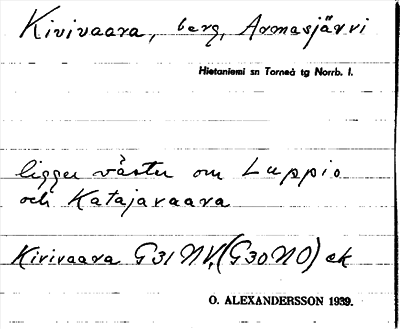 Kivivaara, berg, Armasjärvi
Hietaniemi sn Torneå tg Norrb. l.
ligger väster om Luppio
och Katajavaara
Kivivaara G31NV, (G30NO) ek
O. ALEXANDERSSON 1939.